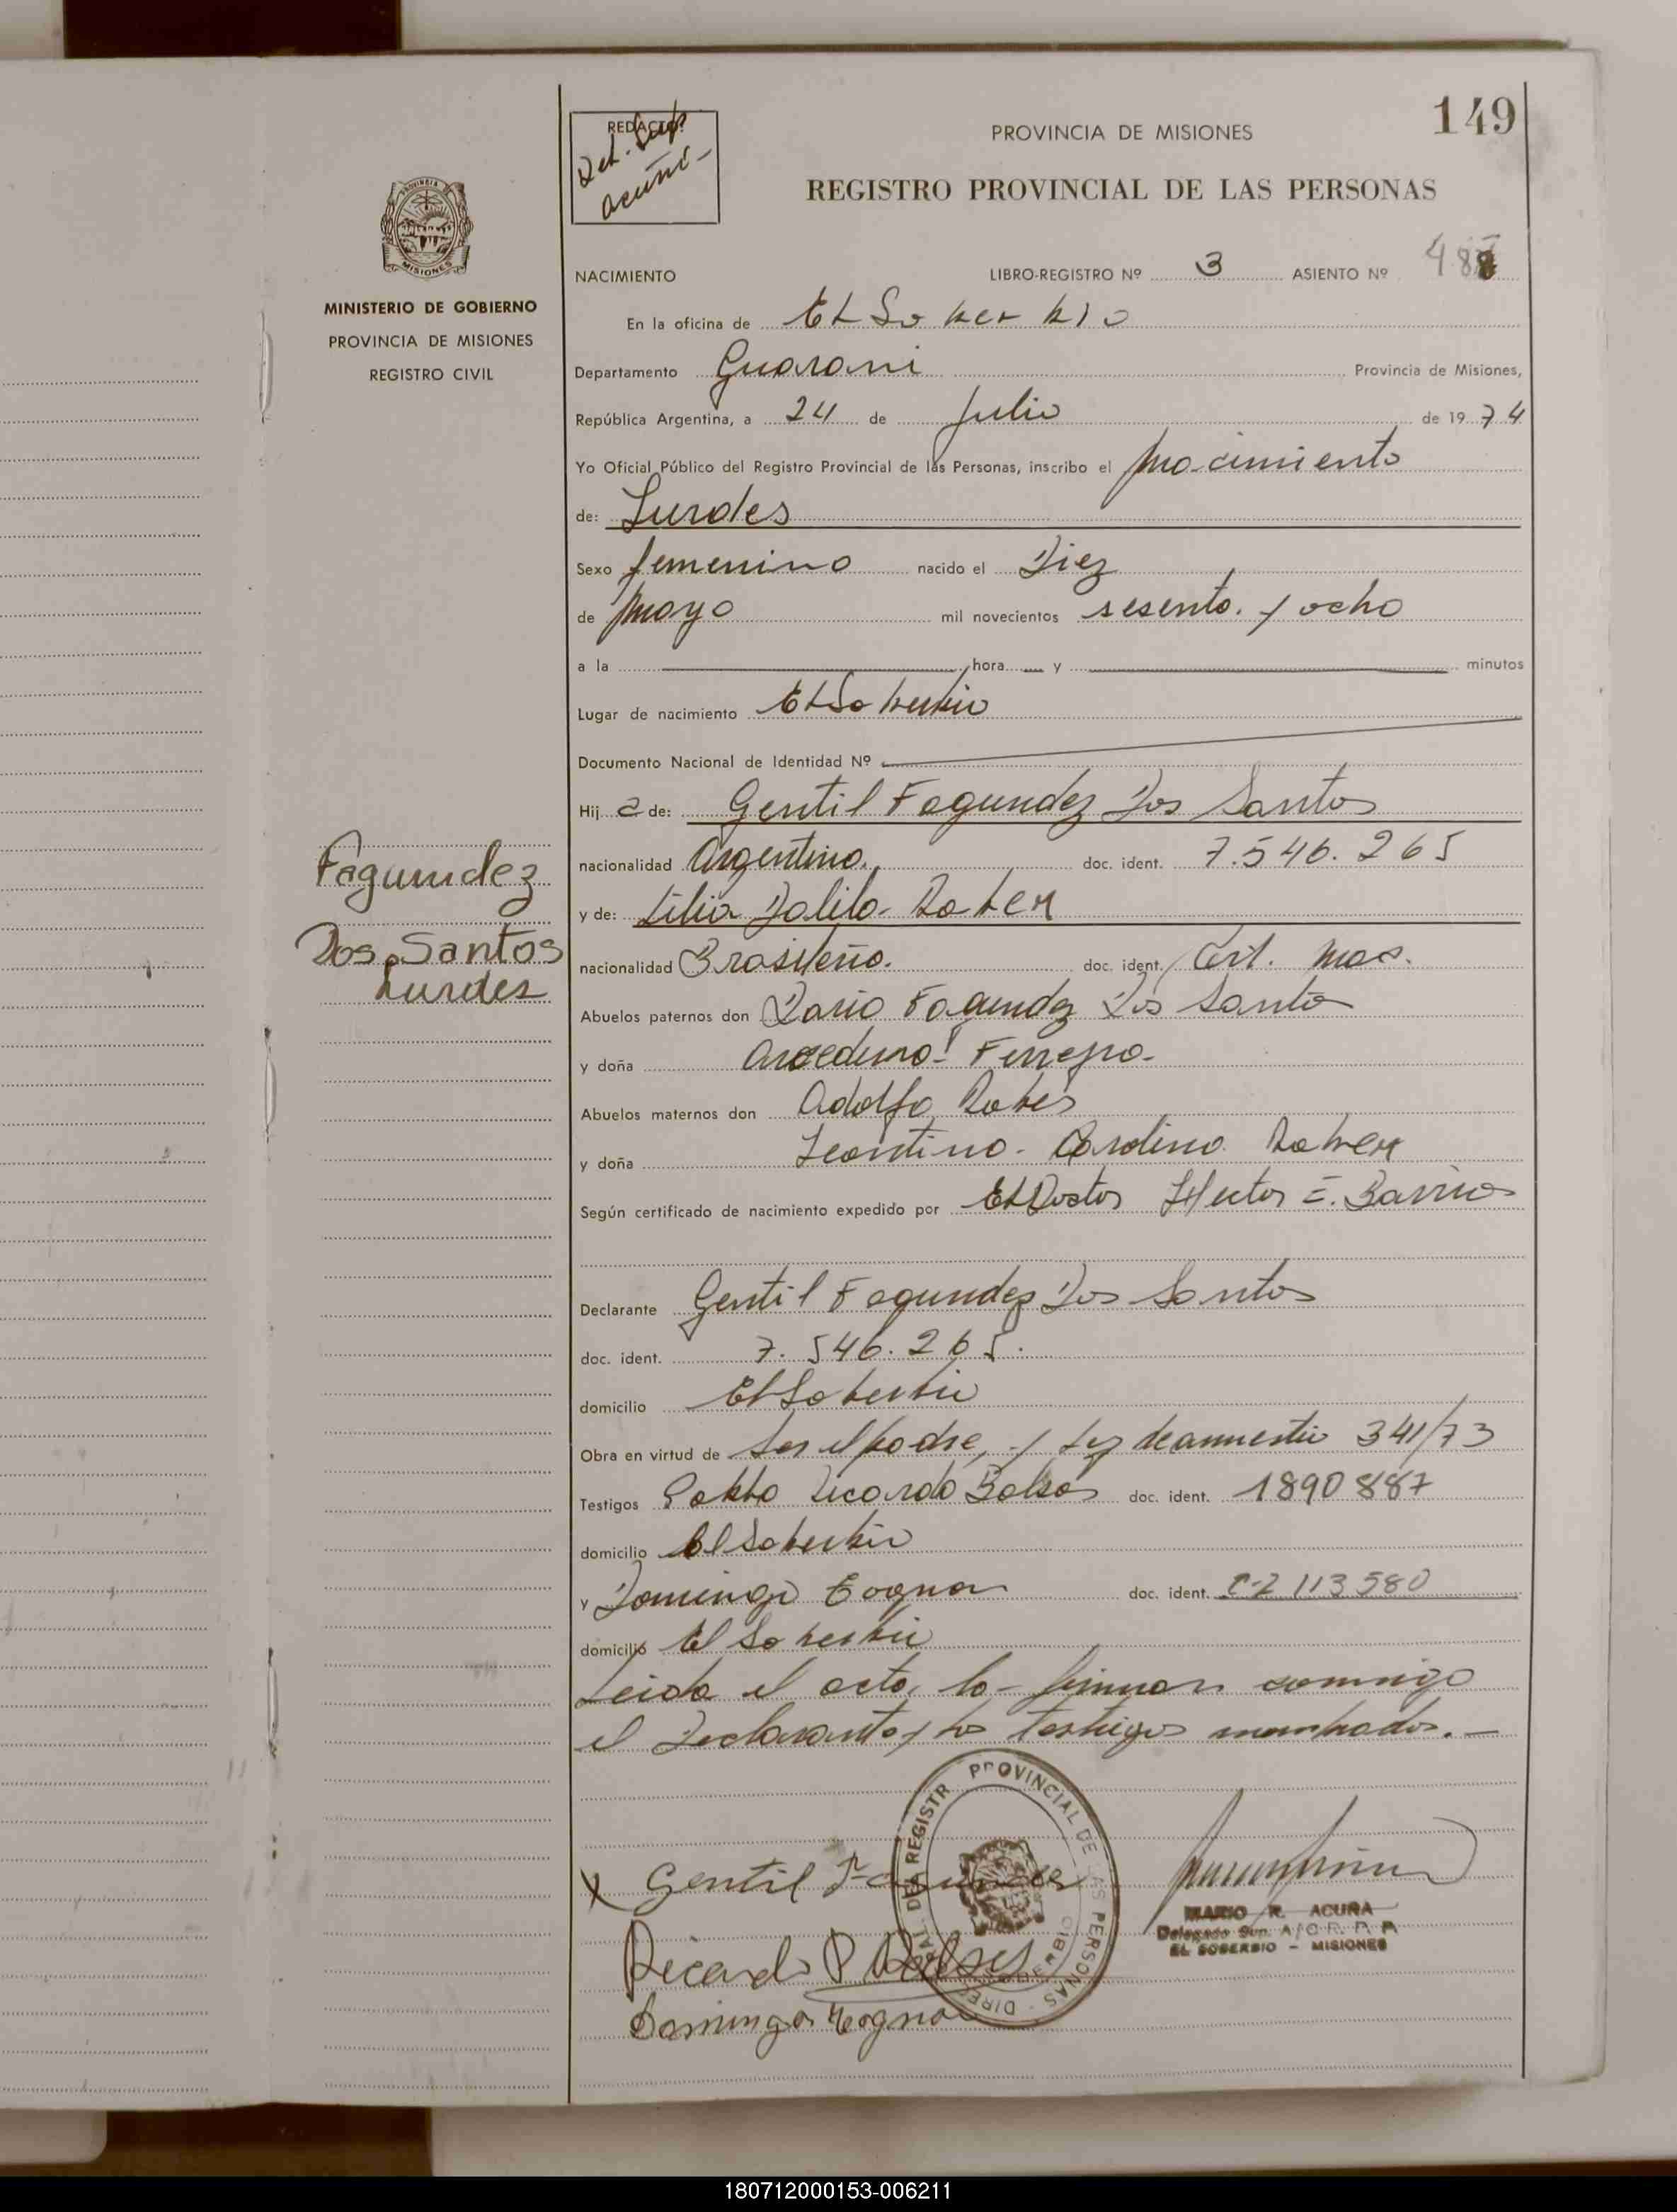 149
REDACTO:
Del. Sup.
Acuña -
PROVINCIA DE MISIONES
REGISTRO PROVINCIAL DE LAS PERSONAS
MISIONES
MINISTERIO DE GOBIERNO
PROVINCIA DE MISIONES
REGISTRO CIVIL
NACIMIENTO LIBRO-REGISTRO Nº 3 ASIENTO Nº
En la oficina de El Soberbio
Departamento Guarani Provincia de Misiones,
República Argentina, a 24 de Julio de 1974
Yo Oficial Público del Registro Provincial de las Personas, inscribo el nacimiento
de: Lurdes
Sexo femenino nacido el Diez
de mayo mil novecientos sesenta y ocho
a la hora y minutos
Lugar de nacimiento El Soberbio
Documento Nacional de Identidad Nº
Hij a de: Gentil Fagundez Dos Santos
nacionalidad Argentina. doc. ident. 7.546.265
y de: Lilia Dalila
nacionalidad Brasileña. doc. ident. Cert. nac.
Abuelos paternos don Dario Fagundez Dos Santo
y doña
Abuelos maternos don Adolfo
y doña Leontina - Carolina
Según certificado de nacimiento expedido por El Doctor Hector E. Barrios
Fagundez
Dos Santos
Lurdes
Declarante Gentil Fagundez Dos Santos
doc. ident. 7.546.265.
domicilio El Soberbio
Obra en virtud de Ser el padre, y Ley de amnestia 341/73
Testigos Pablo Ricardo doc. ident. 1890887
domicilio El Soberbio
y Domingo doc. ident. 113580
domicilio El Soberbio
Leida el acta, la firman conmigo
el Declarante y los testigos nombrados. -
X Gentil Fagundes
Ricardo P
Domingo
REGISTR PROVINCIAL DE LAS PERSONAS
MARIO R. ACUÑA
Delegado Sup. A/C R. P. P
EL SOBERBIO - MISIONES
180712000153-006211